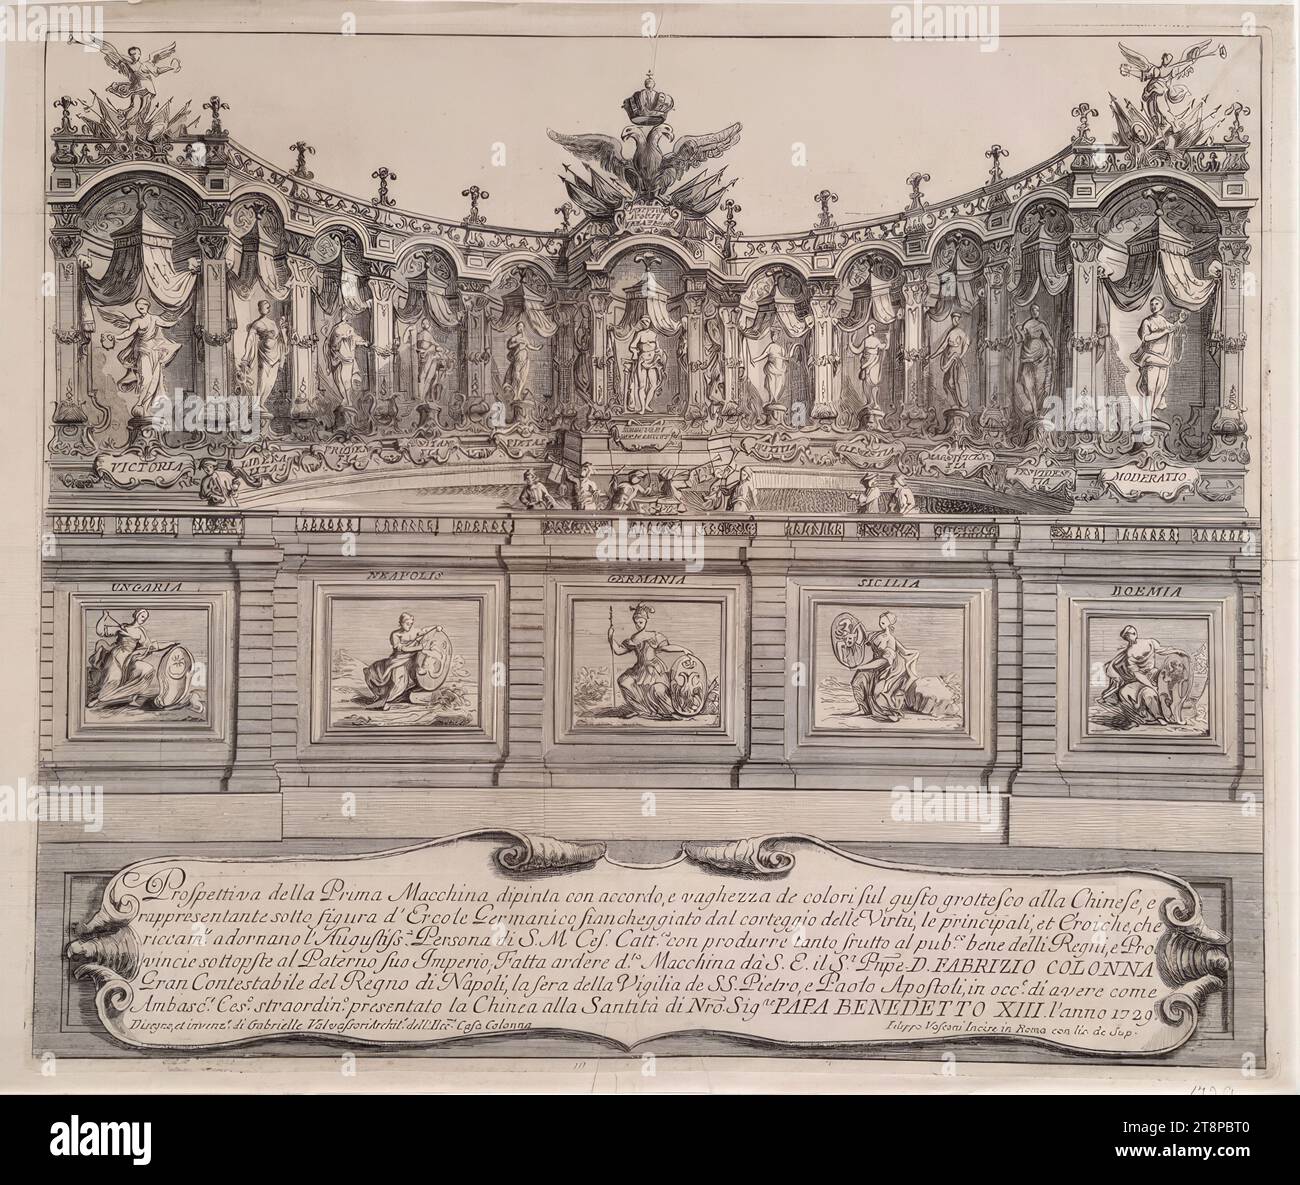 VICTORIA
LIBERA
LITAS
PRUDEN
TIA
PIETAS
IUSTITIA
CLEMENTIA
MAGNIFICEN
TIA
PROVIDEN
TIA
MODERATIO
UNGARIA
NEAPOLIS
GERMANIA
SICILIA
BOEMIA
Prospettiva della Prima Macchina dipinta con accordo, e vaghezza de colori sul gusto grottesco alla Chinese, e
rappresentante sotto figura d' Ercole Germanico, fiancheggiato dal corteggio delle Virtù, le principali, et Eroiche, che
riccam.e adornano l'Augustiss.a Persona di S. M. Ces. Catt.ca con produrre tanto frutto al pub.o bene delli Regni, e Pro
vincie sottoposte al Paterno suo Imperio, Fatta ardere d.ta Macchina da S. E. il S.r Pnpe D. FABRIZIO COLONNA
Gran Contestabile del Regno di Napoli, la sera della Vigilia de SS. Pietro, e Paolo Apostoli, in occ.e di avere come
Ambasc.r Ces.o straordin.o presentato la Chinea alla Santità di Nro. Sig.re PAPA BENEDETTO XIII. l'anno 1729.
Disegno, et invenz.e di Gabrielle Valvassori Archit.o dell' Ecc.ma Casa Colonna
Filippo Vasconi Incise in Roma con lic. de Sup.
alamy
Image ID: 2T8PBT0
www.alamy.com